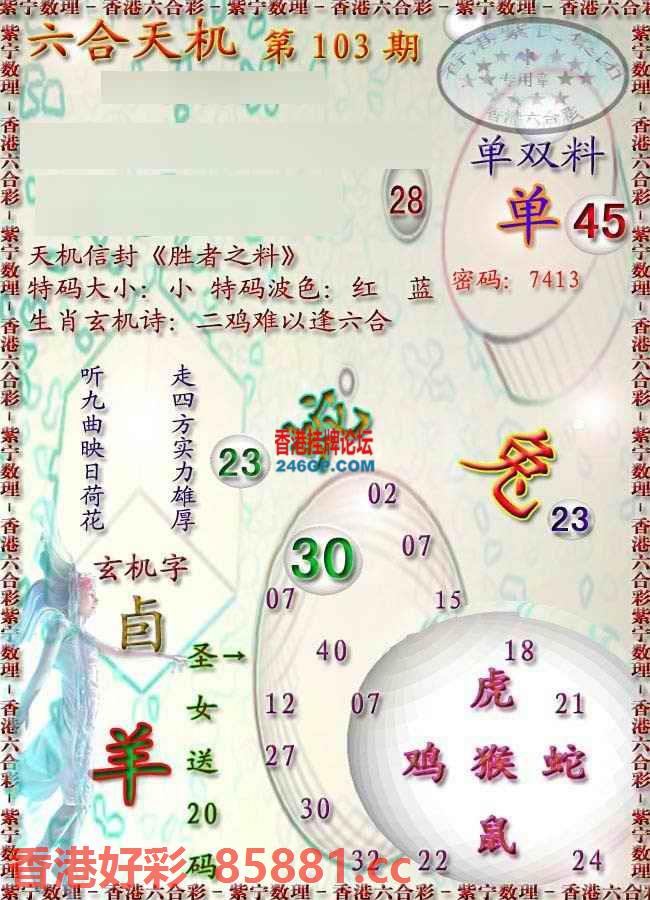 紫宁数理－香港六合彩－紫宁数理－香港六合彩－紫宁数理－香港六合彩
六合天机 第 103 期
专用章
香港六合彩
单双料
单 45
28
天机信封《胜者之料》
特码大小：小 特码波色：红 蓝
密码：7413
生肖玄机诗：二鸡难以逢六合
走四方实力雄厚
听九曲映日荷花
香港挂牌论坛
246GP.COM
23
兔
23
02
30
07
07
15
玄机字
卣
圣女送20码
→
40
18
虎
12
07
21
羊
鸡 猴 蛇
27
30
鼠
32
22
24
香港好彩 85881.cc
紫宁数理－香港六合彩－紫宁数理－香港六合彩－紫宁数理－香港六合彩